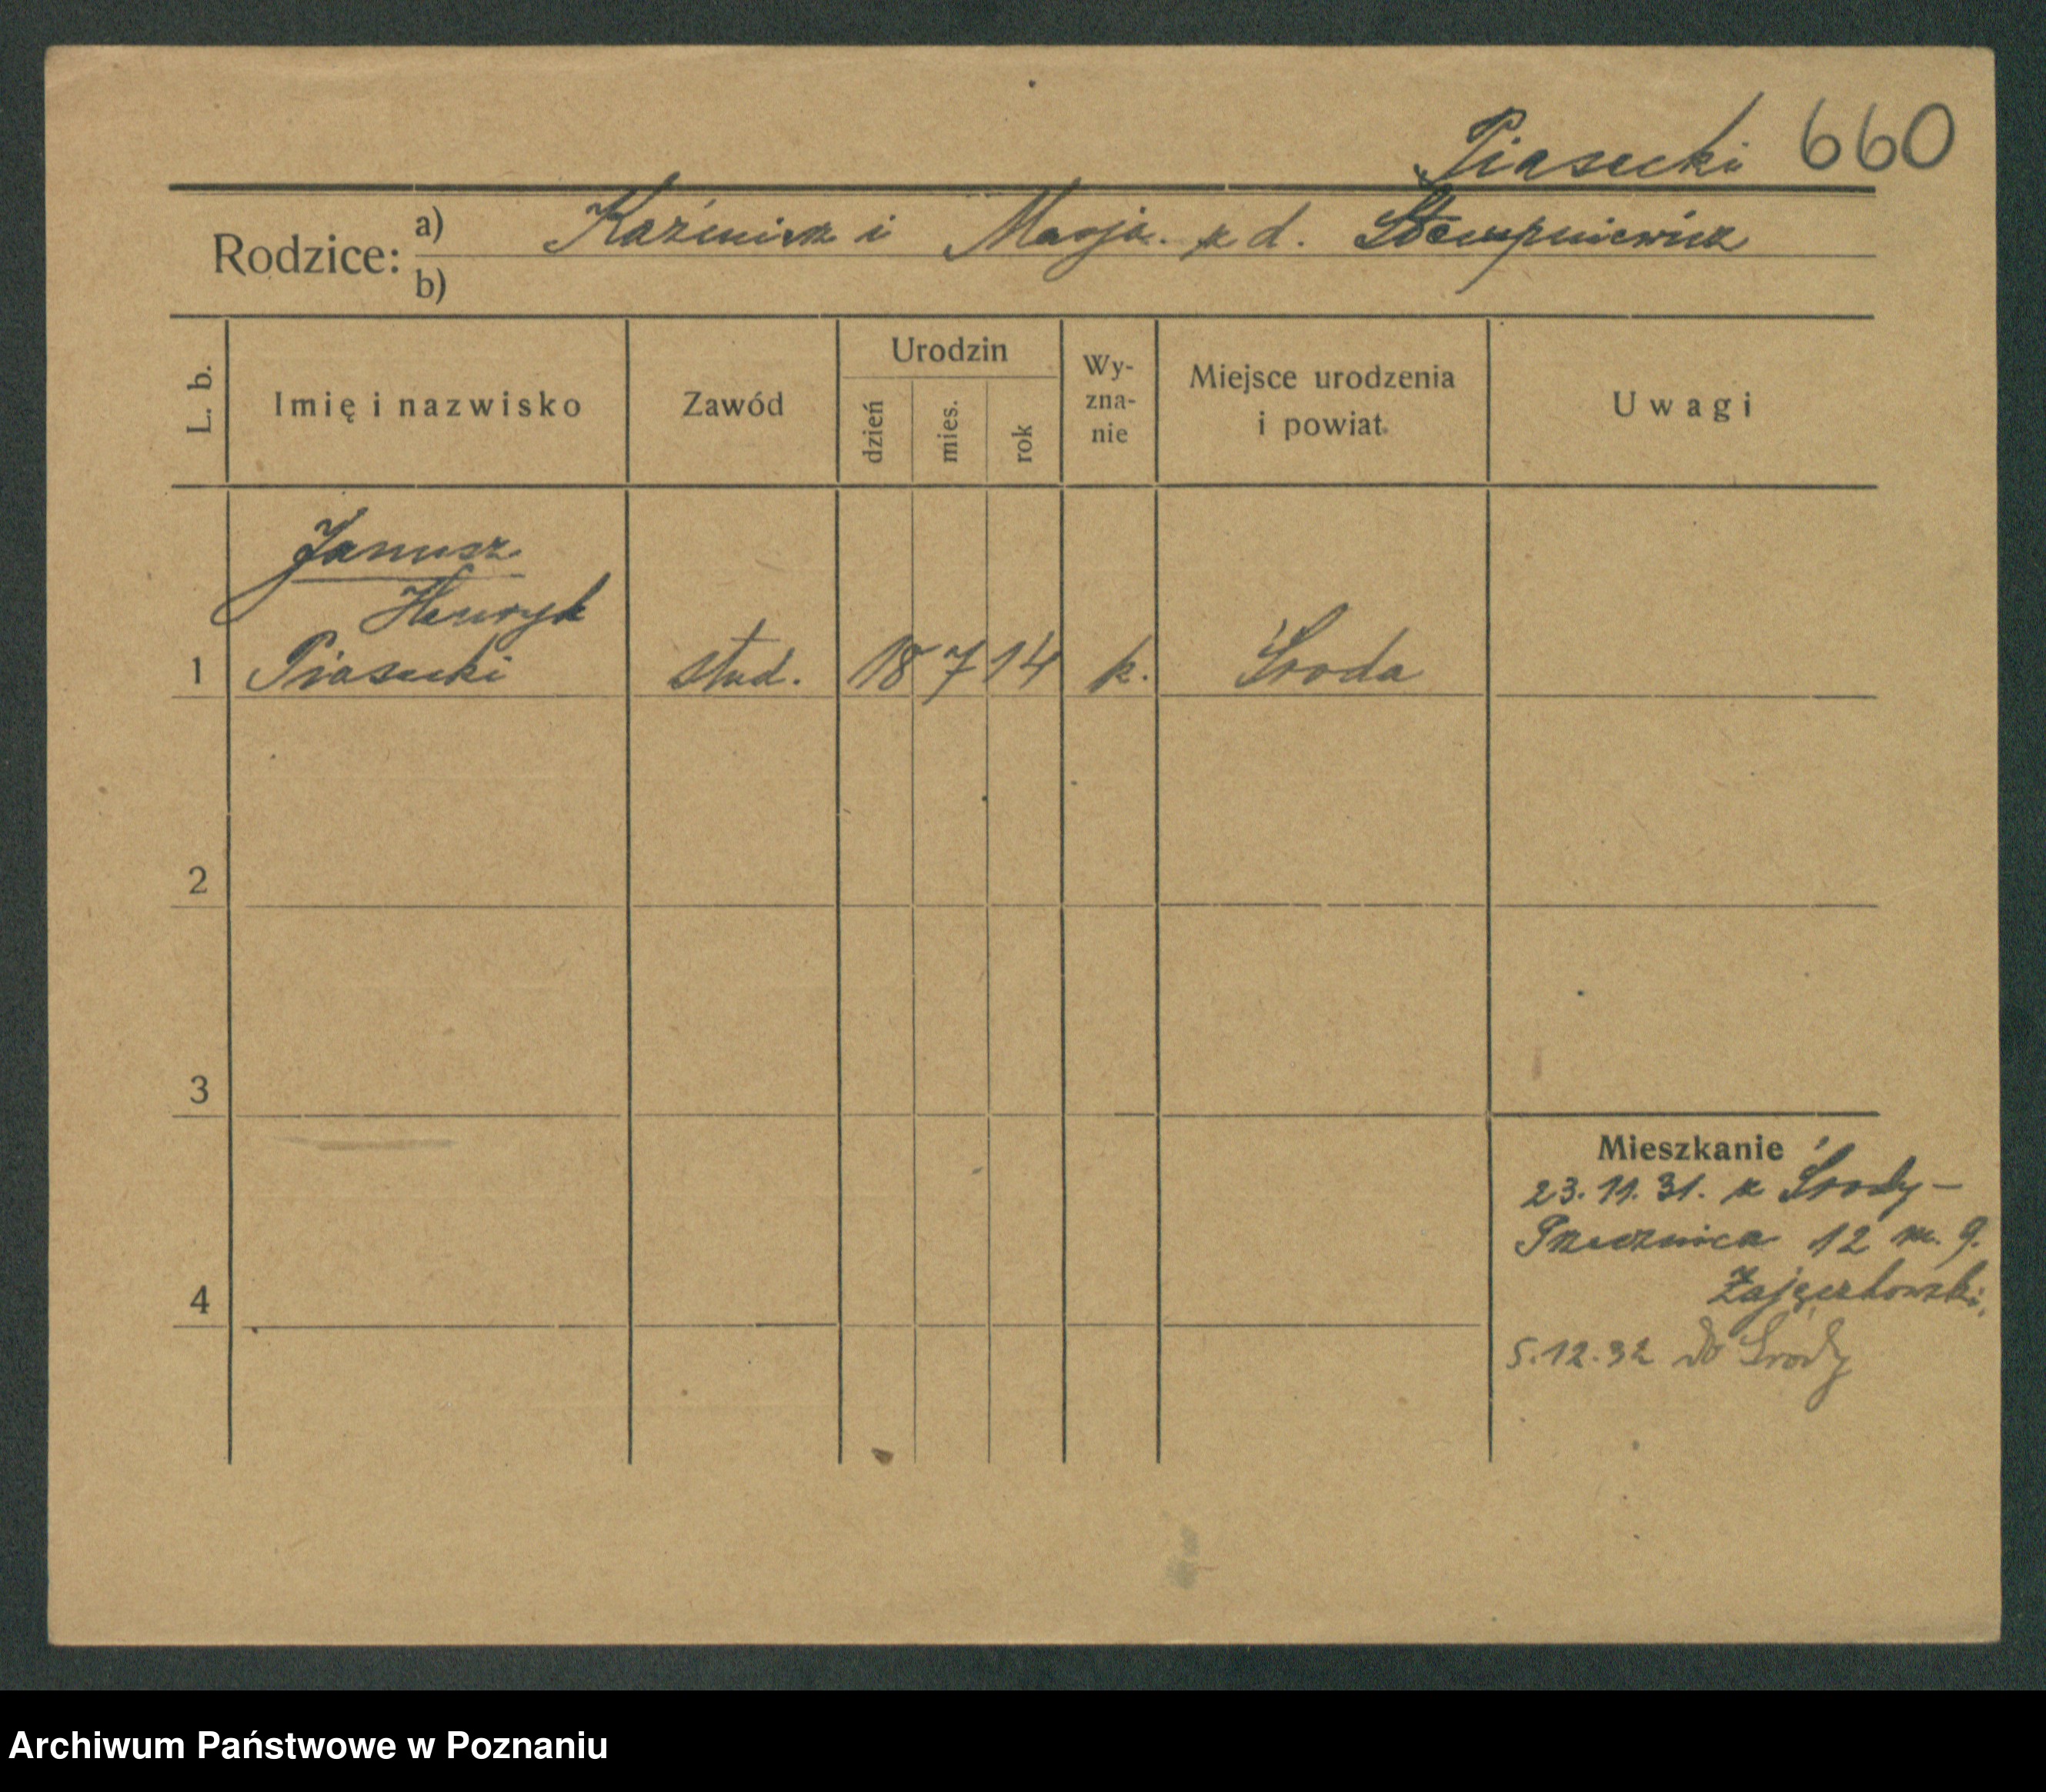 Piasecki 660
Rodzice: a) Kaźmierz i Marja z d. Stempniewicz
b)
L. b. Imię i nazwisko Zawód Urodzin dzień mies. rok Wy-zna-nie Miejsce urodzenia i powiat. Uwagi
Janusz
Henryk
1 Piasecki stud. 18 7 14 k. Środa
2
3
Mieszkanie
23.11.31. z Środy –
Przecznica 12 m. 9.
Zajączkowski.
4
5.12.32 do Środy
Archiwum Państwowe w Poznaniu